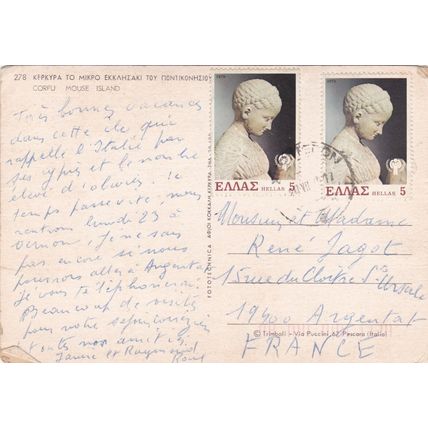 278 ΚΕΡΚΥΡΑ ΤΟ ΜΙΚΡΟ ΕΚΚΛΗΣΑΚΙ ΤΟΥ ΠΟΝΤΙΚΟΝΗΣΙΟΥ
CORFU MOUSE ISLAND
Très bonnes vacances
dans cette île qui
rappelle l'Italie par
ses cyprès et le nombre
élevé d'oliviers. le
temps passe vite, nous
rentrons lundi 23 à
Vernon, je ne sais
pas encore si nous
pourrons aller à Argentat
Je vous téléphonerai.
Beaucoup de
pour votre
toutes nos amitiés
Jeanne et Raymond
1979
ΕΛΛΑΣ HELLAS 5
1979
ΕΛΛΑΣ HELLAS 5
Monsieur et Madame
René Jagot
15 rue du Cloître Ste Ursule
19400 Argentat
FRANCE
© Trimboli - Via Puccini, 62 Pescara (Italia)